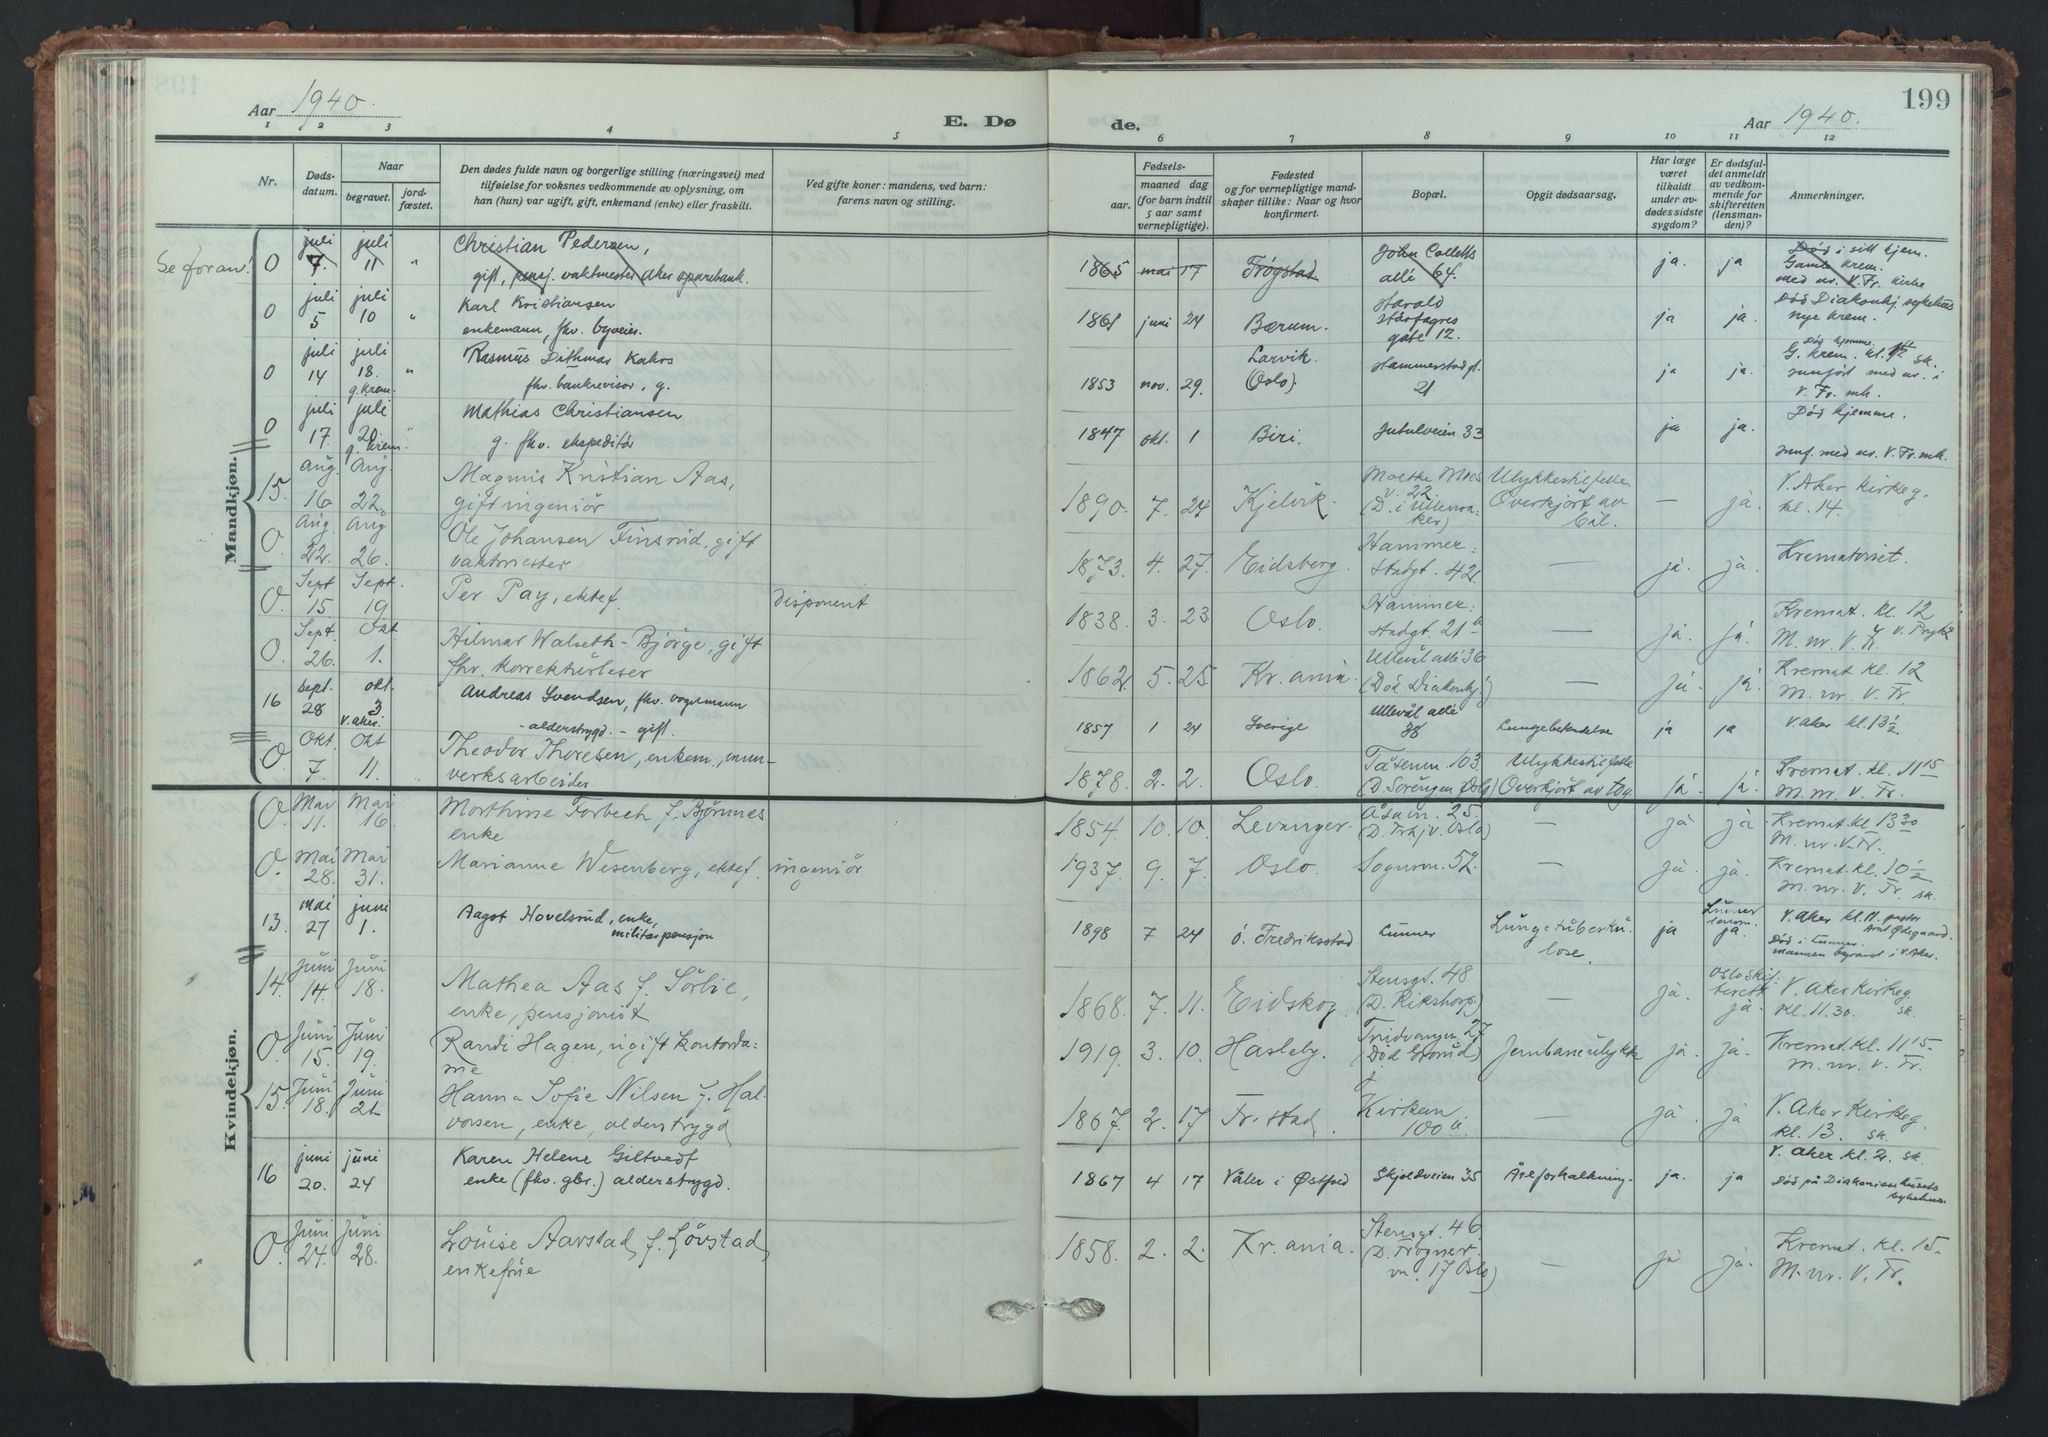 Aar 1940.
E. Dø
de.
Aar 1940.
199
1 2 3 4 5 6 7 8 9 10 11 12
Nr.
Døds-
datum.
Naar
begravet.
jord-
fæstet.
Den dødes fulde navn og borgerlige stilling (næringsvei) med
tilføielse for voksnes vedkommende av oplysning, om
han (hun) var ugift, gift, enkemand (enke) eller fraskilt.
Ved gifte koner: mandens, ved barn:
farens navn og stilling.
Fødsels-
aar.
maaned dag
(for barn indtil
5 aar samt
vernepligtige).
Fødested
og for vernepligtige mand-
skaper tillike: Naar og hvor
konfirmert.
Bopæl.
Opgit dødsaarsag.
Har læge
været
tilkaldt
under av-
dødes sidste
sygdom?
Er dødsfal-
det anmeldt
av vedkom-
mende for
skifteretten
(lensman-
den)?
Anmerkninger.
Mandkjøn.
Se foran!
0 juli 7. juli 11 "
Christian Pedersen,
gift, pensj. vaktmester Aker sparebank.
1865 mai 17 Trøgstad
John Colletts
allé 64.
ja. ja
Død i sitt hjem.
Gamle krem.
med ur. V. Fr. kirke
0 juli 5 juli 10 "
Karl Kristiansen
enkemann, fhv. byveier.
1861 juni 24 Bærum.
Harald
Hårfagres
gate 12.
ja ja.
Død Diakonhj. sykehus
nye krem.
0 juli 14 juli 18. g. krem. "
Rasmus Dithmar Kahrs
fhv. bankrevisor, g.
1853 nov. 29. Larvik.
(Oslo).
Hammerstad gt.
21
ja ja.
Død hjemme.
G. krem. kl. sk.
jordf. med ur. i
V. Fr. mk.
0 juli 17. juli 20. g. krem. "
Mathias Christiansen
g. fhv. ekspeditør
1847 okt. 1 Biri. Jutulveien 33
ja ja.
Død hjemme.
jordf. med ur. V. Fr. mk.
15. Aug. 16 Aug. 22.
Magnus Kristian Aas,
gift ingeniør
1890. 7. 24 Kjelvik.
Moltke Moes
v. 22.
(D. i Ullevå-
ker)
Ulykkestilfelle
Overkjørt av
bil.
— ja.
V. Aker kirkeg.
kl. 14.
0. Aug. 22. Aug 26.
Ole Johansen Finsrud, gift
vaktmester
1873. 4. 27. Eidsberg.
Hammer-
stadgt. 42
— ja. ja.
Krematoriet.
0. Sept 15 Sept. 19
Per Pay, ektef.
Disponent
1838. 3. 23. Oslo.
Hammer-
stadgt. 21 b
— ja. ja.
Kremat. kl. 12
M. ur. V. Fr.
0. Sept. 26. Okt 1.
Hilmar Walseth-Bjørge, gift
fhv. korrekturleser
1862. 5. 25. Kr.ania.
Ullevål allé 36
(Død Diakonhj.)
— ja. ja.
Kremat kl. 12
M. ur. V. Fr.
16 sept. 28 okt. 3 V. Aker.
Andreas Svendsen, fhv. vognmann
- alderstrygd. - gift.
1857 1 24 Sverige
Ullevål allé
38
Lungebetendelse ja ja
V. Aker kl. 13 1/2
0. Okt. 7. Okt 11. "
Theodor Thoresen, enkem., mur-
verksarbeider
1878. 2. 2. Oslo.
Tåsenvn. 103
(D. Sørengen Oslo)
Ulykkestilfelle
Overkjørt av tog.
ja. ja.
Kremat. kl. 11 15
M. ur. V. Fr.
Kvindekjøn.
0. Mai 11. Mai 16
Morthine Forbech f. Bjørnnes
enke
1854. 10. 10. Levanger.
Åsavn. 25.
— ja ja
Kremat. kl. 13 30
M. ur. V. Fr.
0. Mai 28. Mai 31.
Marianne Wesenberg, ektef. ingeniør
1937. 9. 7. Oslo. Sognsvn. 52. — ja. ja.
Kremat. kl. 10 1/2
M. ur. V. Fr. sk.
13. mai 27 juni 1.
Aagot Hovelsrud, enke,
militærpensjon
1898 7 24 ö. Fredriksstad Lunner
Lungetuberku-
lose.
ja
Lunner
lensm.
ja.
V. Aker kl. 11. pastor
Arne Ødegaard.
Død i Lunner.
mannen begravd i V. Aker.
14. Juni 14. Juni 18.
Mathea Aas f. Sørlie,
enke, pensjonist
1868. 7. 11. Eidskog.
Stensgt. 48
(D. Rikshosp.)
— ja.
Oslo skif-
terett
ja.
V. Aker Kirkeg.
kl. 11.30. sk.
0. Juni 15. Juni 19.
Randi Hagen, ugift kontorda-
me
1919. 3. 10. Hasleby.
Tuidvangen 27
(Død Grorud)
Jernbaneulykke ja. ja.
Kremat. kl. 11 15
M. ur. V. Fr.
15. Juni 18. Juni 21
Hanna Sofie Nilsen f. Hal-
vorsen, enke, alderstrygd
1867. 2. 17 Fr.stad.
Kirkevn.
100 b.
— ja. ja
V. Aker Kirkeg.
kl. 13. sk.
16 juni 20. juni 24
Karen Helene Giltvedt
enke (fhv. gbr.) alderstrygd.
1867 4 17 Våler i Østfold Skjoldveien 35 Åreforkalkning. ja. ja
V. Aker kl. 2. sk.
Død på Diakonissehusets
sykehus.
0. Juni 24. Juni 28.
Louise Aarstad f. Løvstad,
enkefrue
1858. 2. 2. Kr.ania.
Stensgt. 46
(D. Frogner-
vn. 17 Oslo)
— ja ja.
Kremat. kl. 15.
M. ur. V. Fr.